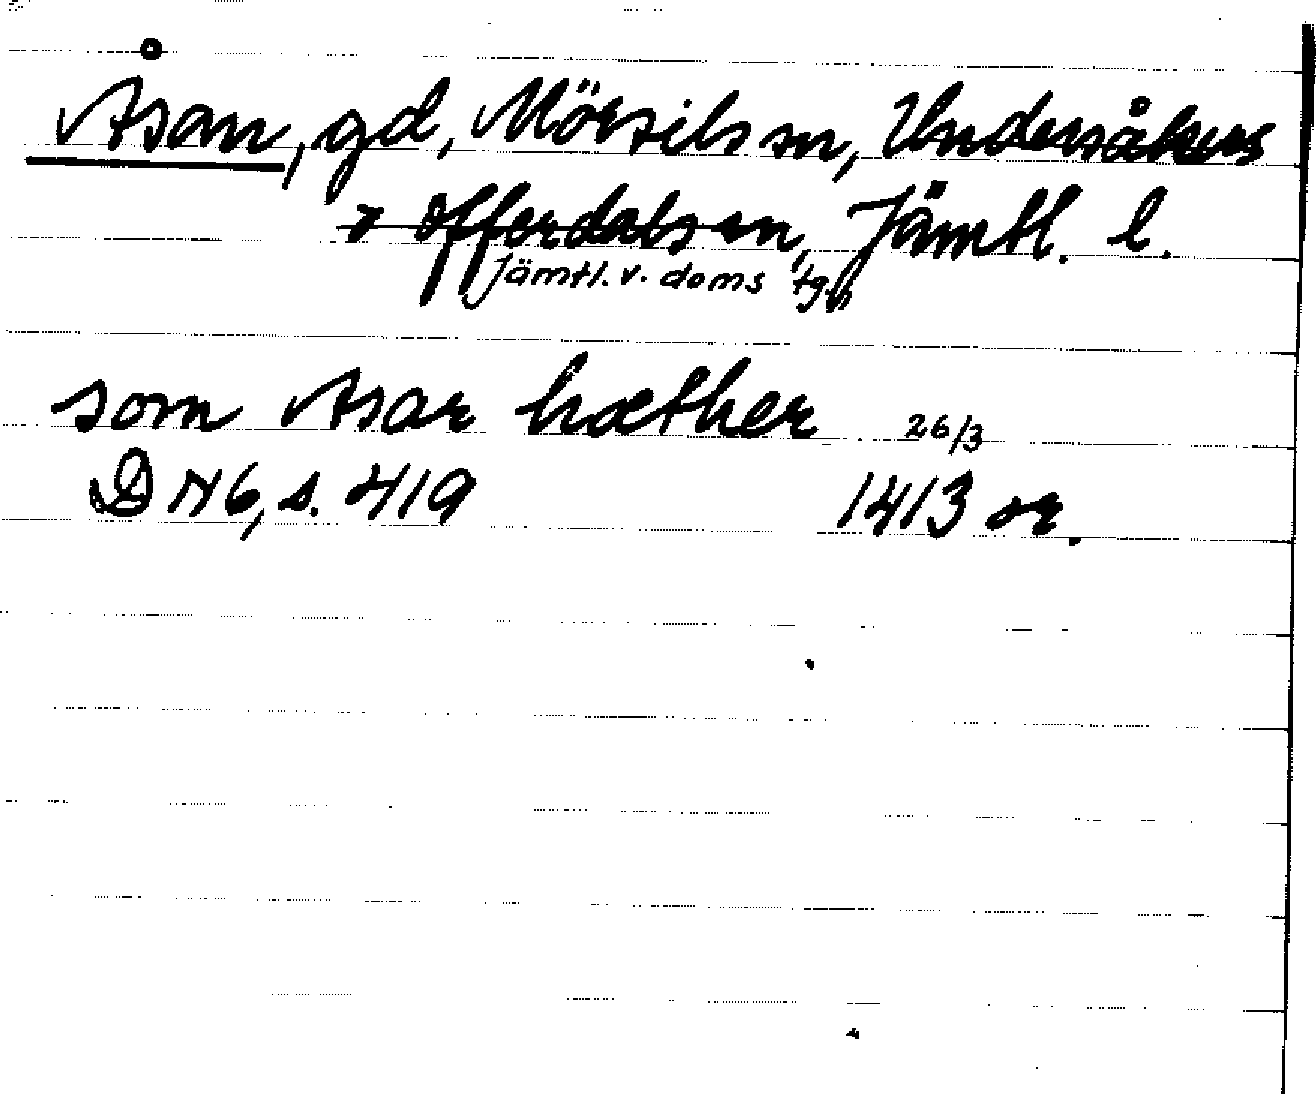 Åsan, gd, Mörsils sn, Undersåkers
o Offerdals sn, Jämtl. l.
Jämtl. v. doms tg
som Asar hæther 26/3
DN 6, s. 419 1413 or.